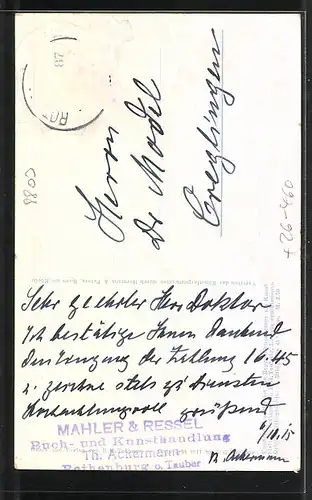 Herrn
Dr Model
Creglingen
Sehr geehrter Herr Doktor
Ich bestätige Ihnen dankend
den Eingang der Zahlung 16.45
u. zeichne stets zu Diensten
Hochachtungsvoll grüßend
6/10.15
Th. Ackermann
MAHLER & RESSEL
Buch- und Kunsthandlung
Th. Ackermann
Rothenburg o. Tauber
87
Ro
9800
+26-460